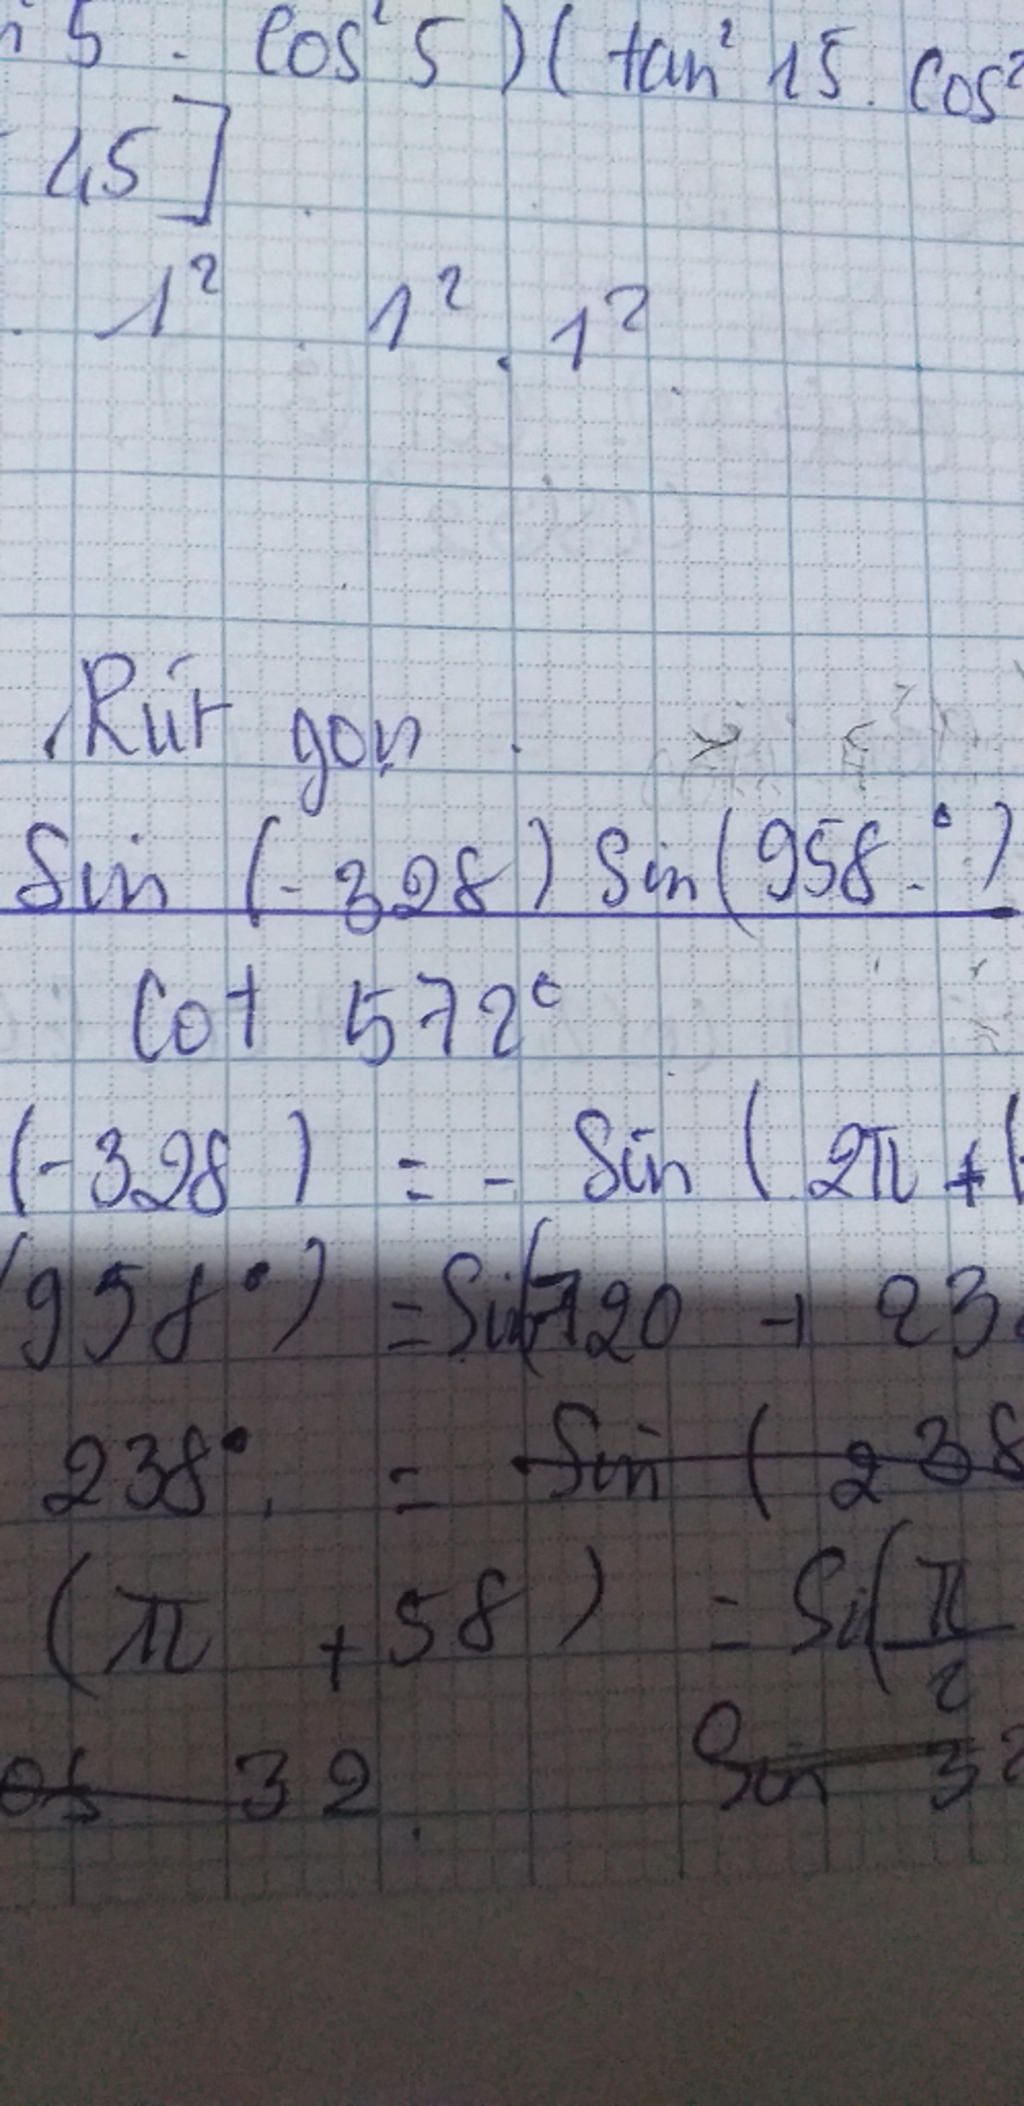 5 . cos² 5 ) ( tan² 15 . cos²
45 ]
. 1² . 1² . 1²
Rút gọn .
Sin (-328) Sin(958.°)
Cot 572°
(-328) = - Sin ( 2π + (
(958°) = Sin(720 + 23
238° . = Sin ( 238
( π + 58 ) = Sin( π
2
32 Sin 32